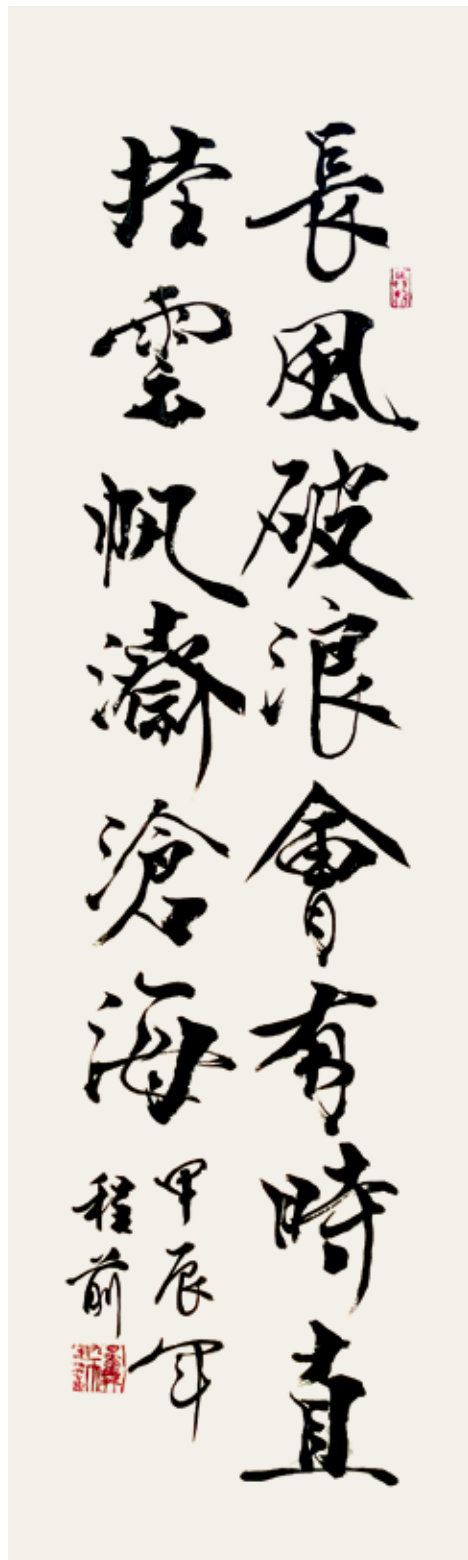 長風破浪會有時直
挂雲帆濟滄海
甲辰年
程前